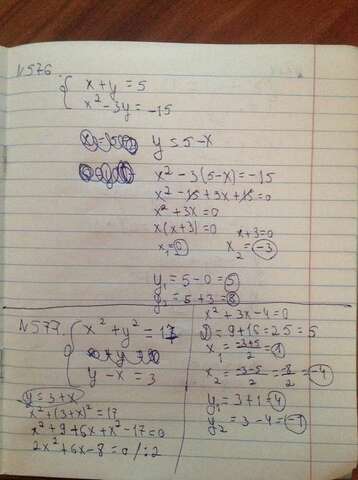 N576.
{ x + y = 5
x² - 3y = -15
y = 5 - x
x² - 3(5-x) = -15
x² - 15 + 3x + 15 = 0
x² + 3x = 0
x(x+3) = 0
x₁ = 0
x+3=0
x₂ = -3
y₁ = 5 - 0 = 5
y₂ = 5 + 3 = 8
N577.
{ x² + y² = 17
y - x = 3
y = 3 + x
x² + (3+x)² = 17
x² + 9 + 6x + x² - 17 = 0
2x² + 6x - 8 = 0 /:2
x² + 3x - 4 = 0
D = 9 + 16 = 25 = 5
x₁ = -3+5/2 = 1
x₂ = -3-5/2 = -8/2 = -4
y₁ = 3 + 1 = 4
y₂ = 3 - 4 = -1